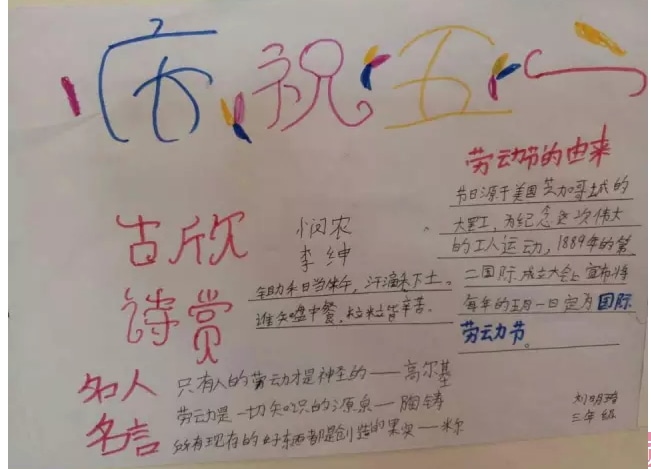 庆祝五一
劳动节的由来
节日源于美国芝加哥城的
大罢工,为纪念这次伟大
的工人运动,1889年的第
二国际成立大会上宣布将
每年的五月一日定为国际
劳动节。
古诗欣赏
悯农
李绅
锄禾日当午,汗滴禾下土。
谁知盘中餐,粒粒皆辛苦。
名人名言
只有人的劳动才是神圣的——高尔基
劳动是一切知识的源泉——陶铸
所有现存的好东西都是创造的果实——米尔
三年级